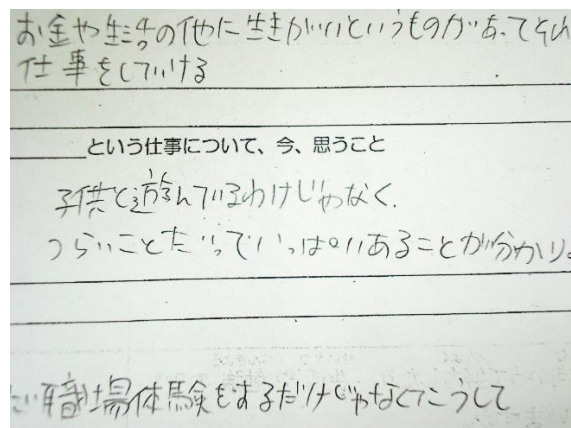 お金や生活の他に生きがいというものがあってそれ
仕事をしていける
という仕事について、今、思うこと
子供と遊んでいるわけじゃなく、
つらいことだっていっぱいあることが分かり。
職場体験をするだけじゃなくてこうして